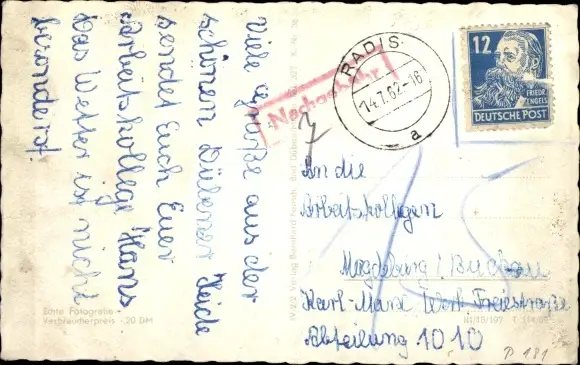 Viele Grüße aus der
schönen Dübener Heide
sendet Euch Euer
Arbeitskollege Hans
Das Wetter ist nicht
berauscht.
Echte Fotografie
Verbraucherpreis -20 DM
RADIS
14.7.62-16
a
Nachgebühr
12
FRIEDR.
ENGELS
DEUTSCHE POST
An die
Arbeitskollegen
Magdeburg / Buckau
Karl-Marx Werk Freiestraße
Abteilung 1010
P 181